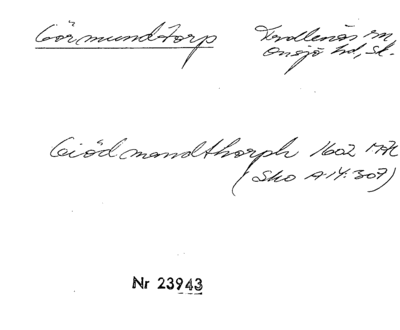 Görmundtorp
Onsjö hd, sk.
Giödmandthorph 1602
(Sko A:14:307)
Nr 23943